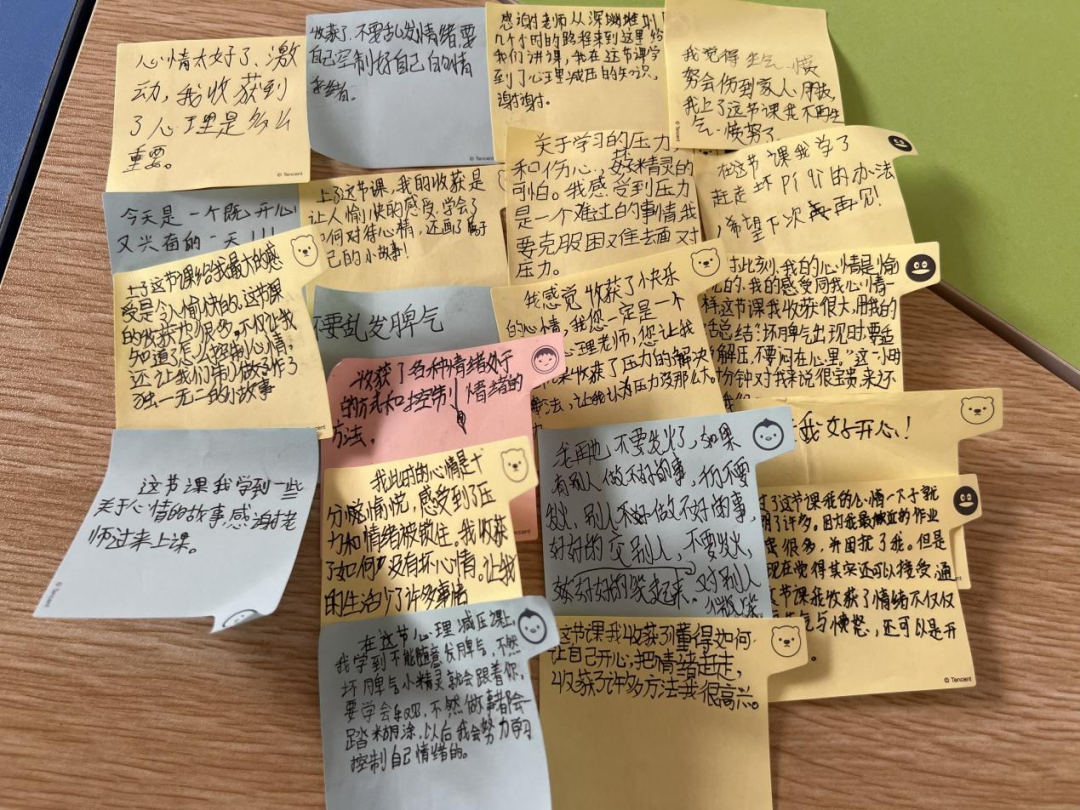 心情太好了、激
动，我收获到
了心理是多么
重要。
© Tencent
收获了不要乱发情绪，要
自己控制好自己的情
绪。
© Tencent
感谢老师从深圳
几个小时的路程来到这里给
我们讲课，我在这节课学
到了心理减压的知识，
谢谢。
我觉得生气、愤
努会伤到家人、朋友，
我上了这节课我不再生
气、愤努了。
© Tencent
今天是一个既开心
又兴奋的一天！！！
上了这节课，我的收获是
让人愉快的感受，学会了
如何对待心情，还画了属于
自己的小故事！
关于学习的压力
和伤心，坏精灵的
可怕。我感受到压力
是一个难过的事情，我
要克服困难去面对
压力。
在这节课我学了
赶走坏pí qì的办法
，希望下次再见！
上了这节课给我最大的感
受是令人愉快的，这节课
的收获也很多。不仅让我
知道了怎么控制心情，
还让我们制做了
独一无二的小故事
不要乱发脾气
我感觉收获了快乐
的心情，我您一定是一个
心理老师，您让我
收获了压力的解决
方法，让我认为压力没那么大。
此时此刻，我的心情是愉
悦的，我的感受同我心情一
样，这节课我收获很大，用我的
话总结："坏脾气出现时，要适
解压，不要闷在心里。"这一小时
分钟对我来说很宝贵，来还
收获了各种情绪处于
的方式和控制情绪的
方法。
我好开心！
这节课我学到一些
关于心情的故事感谢老
师过来上课。
© Tencent
我此时的心情是十
分愉悦，感受到了压
力和情绪被锁住。我收获
了如何没有坏心情。让我
的生活少了许多事情
我再也不要发火了，如果
有别人做不好的事，你不要
发火，别人不好做不好的事，
好好的交别人，不要发火，
好好的笑起来。对别人
了这节课我的心情一下子就
明了许多。因为我最近的作业
很多，并困扰了我。但是
现在觉得其实还可以接受，通
过这节课我收获了情绪不仅仅
气与愤怒，还可以是开
© Tencent
在这节心理减压课上，
我学到不能随意发脾气，不然
坏脾气小精灵就会跟着你。
要学会，不然做事都会
踏糊涂，以后我会努力学习
控制自己情绪的。
这节课我收获了懂得如何
让自己开心，把情绪赶走，
收获了许多方法我很高兴。